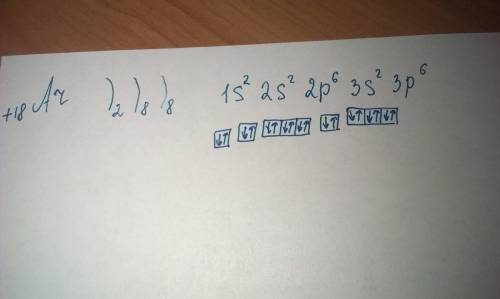 +18 Ar )2 )8 )8 1s² 2s² 2p⁶ 3s² 3p⁶
↓↑ ↓↑ ↓↑ ↓↑ ↓↑ ↓↑ ↓↑ ↓↑ ↓↑